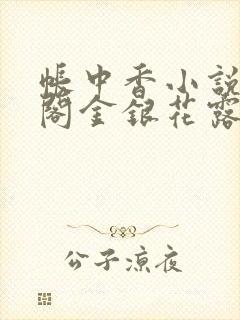 帳中香小說
閣金銀花露
公子涼夜